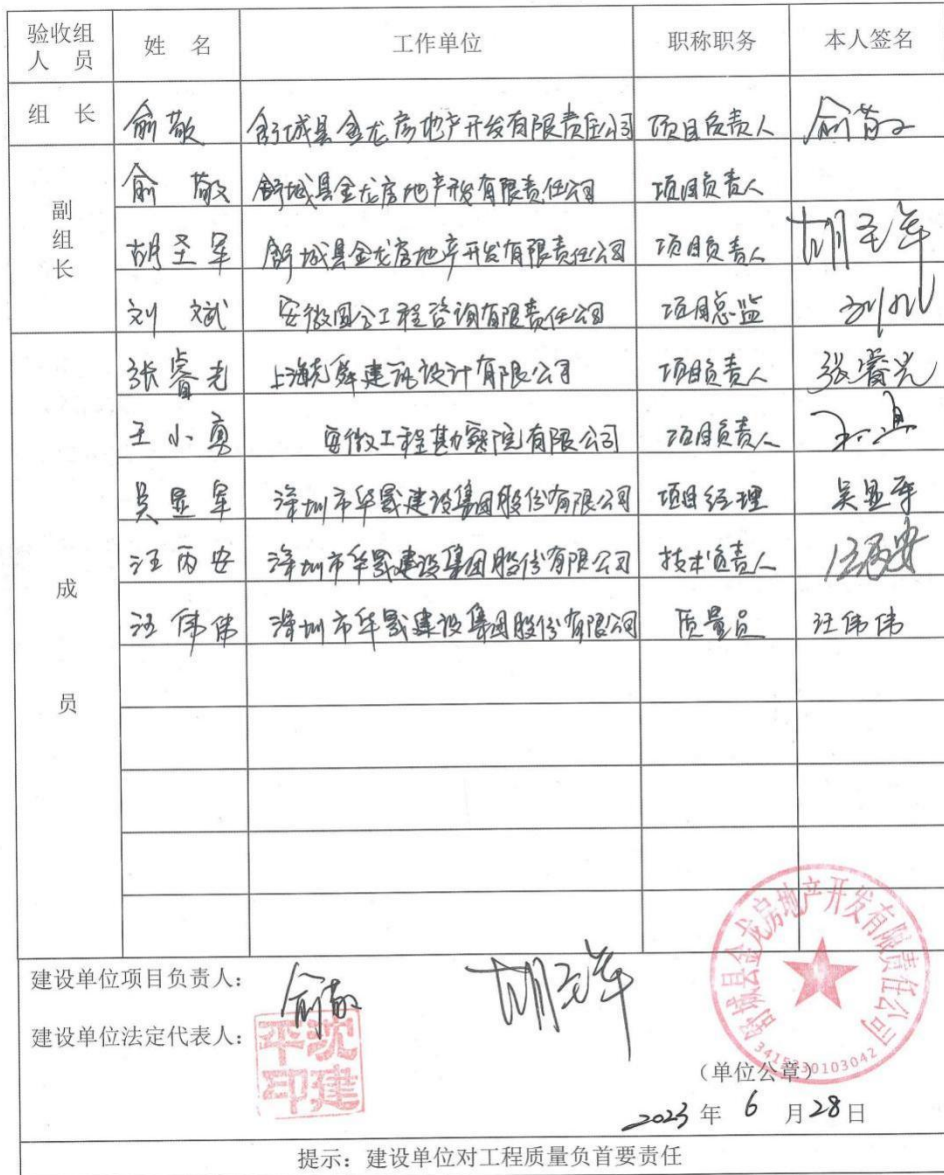 验收组人员 姓名 工作单位 职称职务 本人签名
组长 俞敬 舒城县金龙房地产开发有限责任公司 项目负责人 俞敬
副组长 俞敬 舒城县金龙房地产开发有限责任公司 项目负责人
胡圣军 舒城县金龙房地产开发有限责任公司 项目负责人 胡圣军
刘斌 安徽国公工程咨询有限责任公司 项目总监
成员 张睿光 上海尧舜建筑设计有限公司 项目负责人 张睿光
王小勇 安徽工程勘察院有限公司 项目负责人
吴显军 深圳市华晟建设集团股份有限公司 项目经理 吴显军
汪丙安 深圳市华晟建设集团股份有限公司 技术负责人 汪丙安
汪伟伟 深圳市华晟建设集团股份有限公司 质量员 汪伟伟
建设单位项目负责人: 俞敬 胡圣军
建设单位法定代表人: 沈建平印
舒城县金龙房地产开发有限责任公司
3415230103042
(单位公章)
2023年6月28日
提示:建设单位对工程质量负首要责任